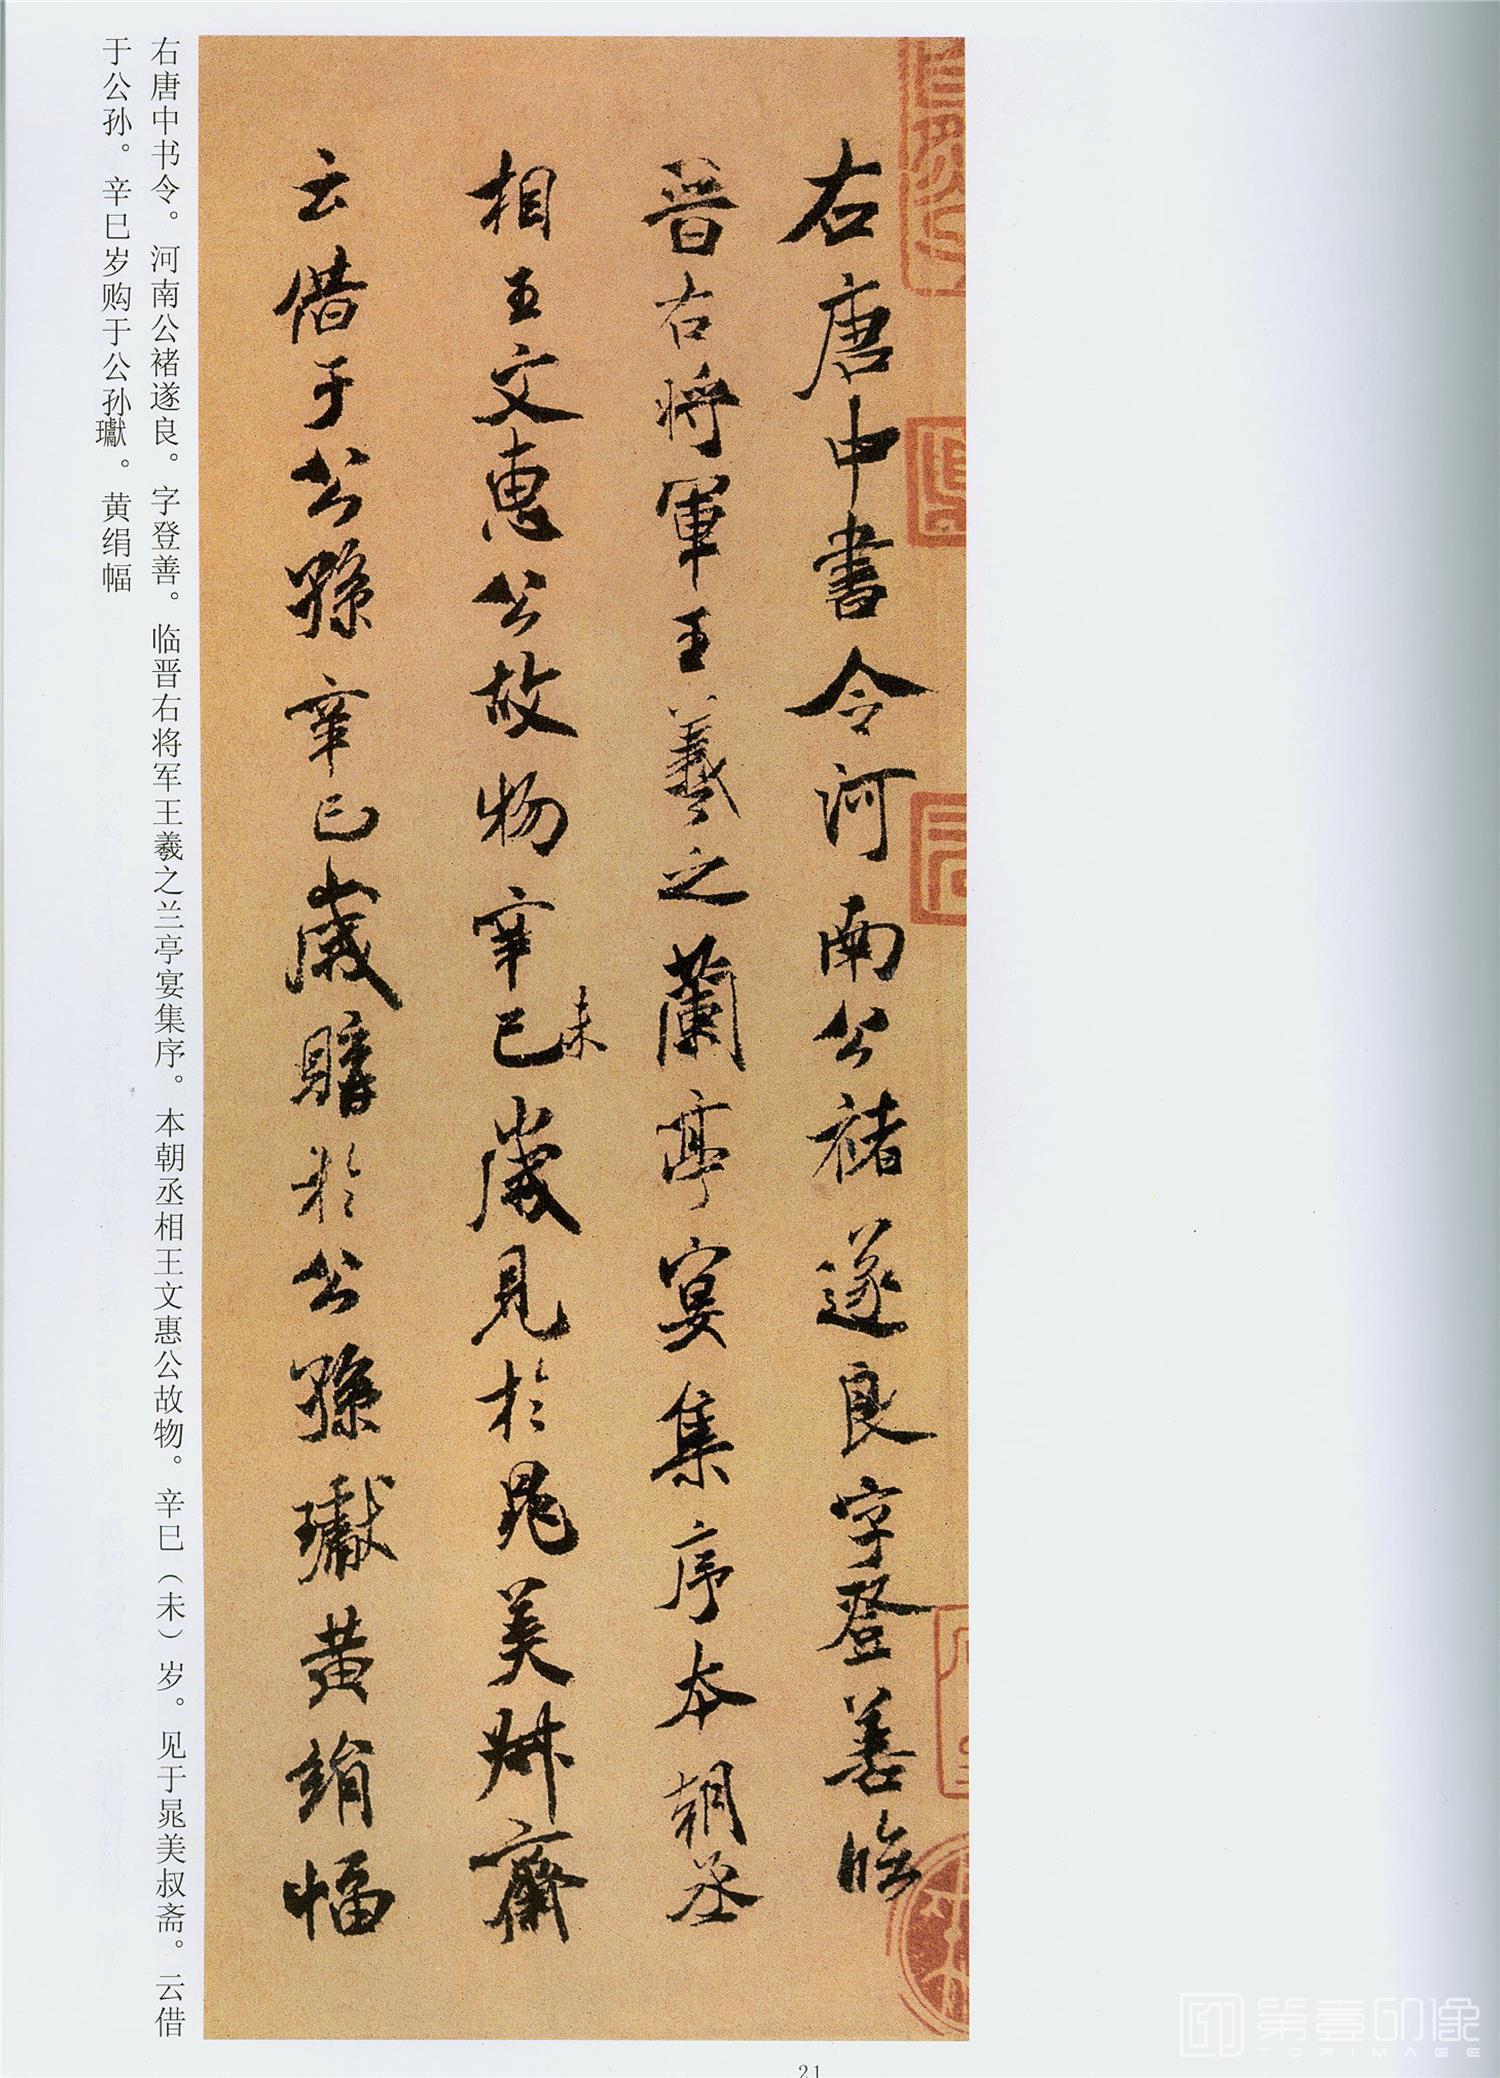 右唐中書令河南公褚遂良字登善臨
晉右將軍王羲之蘭亭宴集序本朝丞
相王文惠公故物辛巳未歲見於晁美叔齋
云借于公孫辛巳歲購於公孫瓛黄絹幅
右唐中书令。河南公褚遂良。字登善。临晋右将军王羲之兰亭宴集序。本朝丞相王文惠公故物。辛巳（未）岁。见于晁美叔斋。云借
于公孙。辛巳岁购于公孙瓛。黄绢幅
21
第壹印像
TOPIMAGE